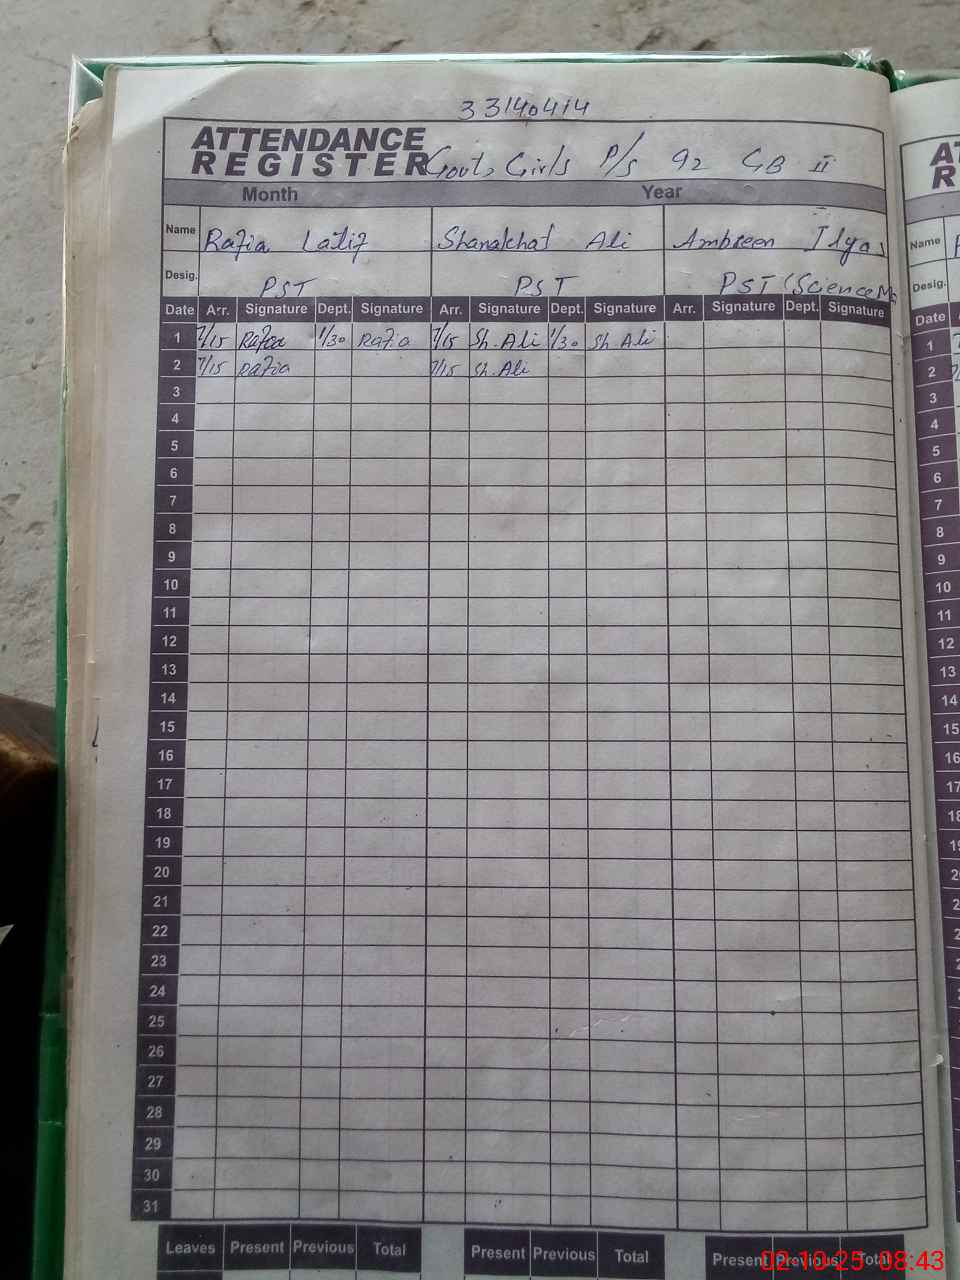 33140414
ATTENDANCE
REGISTER Govt, Girls P/S 92 GB II
Month Year
Name Rafia Latif Shanakhat Ali Ambreen Ilyas
Desig. PST PST PST (Science
Date Arr. Signature Dept. Signature Arr. Signature Dept. Signature Arr. Signature Dept. Signature
1 7/15 Rafia 1/30 Rafia 7/15 Sh.Ali 1/30 Sh Ali
2 7/15 Rafia 7/15 Sh.Ali
3
4
5
6
7
8
9
10
11
12
13
14
15
16
17
18
19
20
21
22
23
24
25
26
27
28
29
30
31
Leaves Present Previous Total Present Previous Total Present Previous Total
Name
Desig.
Date
1
2
3
4
5
6
7
8
9
10
11
12
13
14
15
16
17
18
02-10-25 08:43